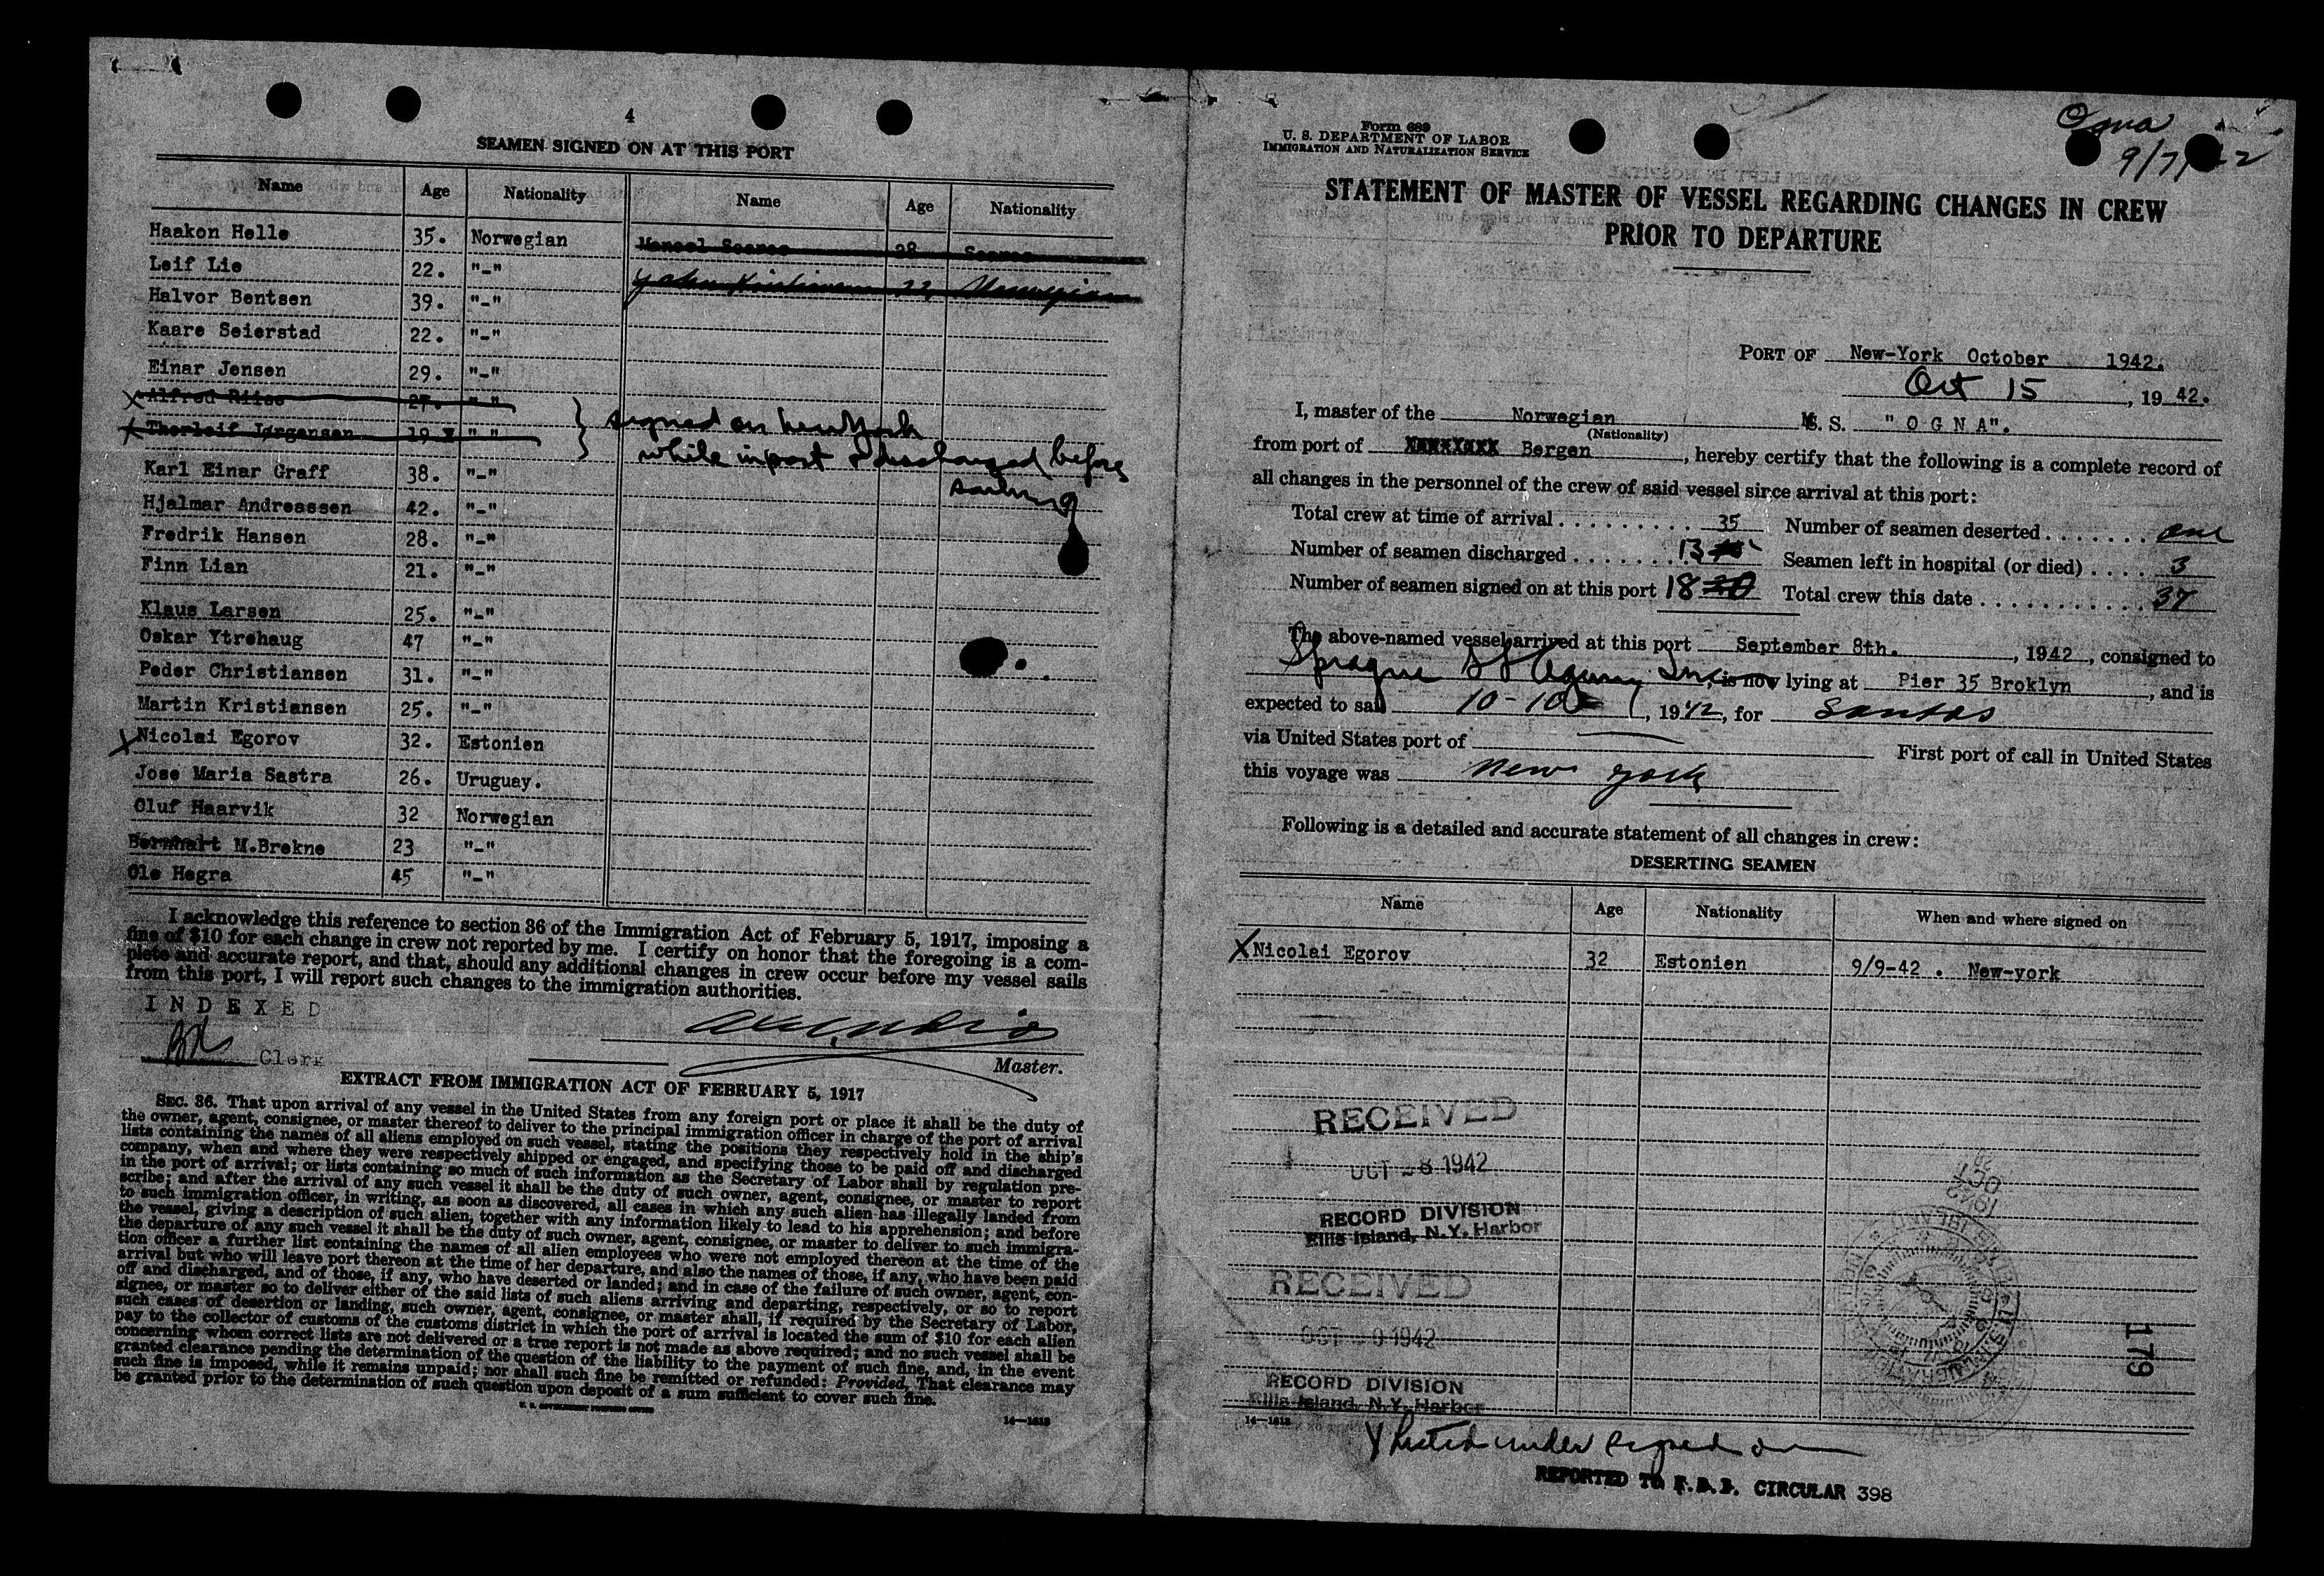 4
SEAMEN SIGNED ON AT THIS PORT
Name Age Nationality Name Age Nationality
Haakon Helle 35. Norwegian
Leif Lie 22. "-"
Halvor Bentsen 39. "-"
Kaare Seierstad 22. "-"
Einar Jensen 29. "-"
X Alfred Riise 27. " "
X Thorleif Jørgensen 19 " "
signed on New York
while in port & discharged before
sailing
Karl Einar Graff 38. "-"
Hjalmar Andreassen 42. "-"
Fredrik Hansen 28. "-"
Finn Lian 21. "-"
Klaus Larsen 25. "-"
Oskar Ytrehaug 47 "-"
Peder Christiansen 31. "-"
Martin Kristiansen 25. "-"
X Nicolai Egorov 32. Estonien
Jose Maria Sastra 26. Uruguay.
Oluf Haarvik 32 Norwegian
Bernhart M.Brekne 23 "-"
Ole Hegra 45 "-"
I acknowledge this reference to section 36 of the Immigration Act of February 5, 1917, imposing a
fine of $10 for each change in crew not reported by me. I certify on honor that the foregoing is a com-
plete and accurate report, and that, should any additional changes in crew occur before my vessel sails
from this port, I will report such changes to the immigration authorities.
INDEXED
Clerk
Master.
EXTRACT FROM IMMIGRATION ACT OF FEBRUARY 5, 1917
SEC. 36. That upon arrival of any vessel in the United States from any foreign port or place it shall be the duty of
the owner, agent, consignee, or master thereof to deliver to the principal immigration officer in charge of the port of arrival
lists containing the names of all aliens employed on such vessel, stating the positions they respectively hold in the ship's
company, when and where they were respectively shipped or engaged, and specifying those to be paid off and discharged
in the port of arrival; or lists containing so much of such information as the Secretary of Labor shall by regulation pre-
scribe; and after the arrival of any such vessel it shall be the duty of such owner, agent, consignee, or master to report
to such immigration officer, in writing, as soon as discovered, all cases in which any such alien has illegally landed from
the vessel, giving a description of such alien, together with any information likely to lead to his apprehension; and before
the departure of any such vessel it shall be the duty of such owner, agent, consignee, or master to deliver to such immigra-
tion officer a further list containing the names of all alien employees who were not employed thereon at the time of the
arrival but who will leave port thereon at the time of her departure, and also the names of those, if any, who have been paid
off and discharged, and of those, if any, who have deserted or landed; and in case of the failure of such owner, agent, con-
signee, or master so to deliver either of the said lists of such aliens arriving and departing, respectively, or so to report
such cases of desertion or landing, such owner, agent, consignee, or master shall, if required by the Secretary of Labor,
pay to the collector of customs of the customs district in which the port of arrival is located the sum of $10 for each alien
concerning whom correct lists are not delivered or a true report is not made as above required; and no such vessel shall be
granted clearance pending the determination of the question of the liability to the payment of such fine, and, in the event
such fine is imposed, while it remains unpaid; nor shall such fine be remitted or refunded: Provided, That clearance may
be granted prior to the determination of such question upon deposit of a sum sufficient to cover such fine.
U. S. GOVERNMENT PRINTING OFFICE
14—1618
Form 689
U. S. DEPARTMENT OF LABOR
IMMIGRATION AND NATURALIZATION SERVICE
Ogna
9/7/42
STATEMENT OF MASTER OF VESSEL REGARDING CHANGES IN CREW
PRIOR TO DEPARTURE
PORT OF New-York October 1942.
Oct 15, 1942.
I, master of the Norwegian M. S. "OGNA".
(Nationality)
from port of Bergen, hereby certify that the following is a complete record of
all changes in the personnel of the crew of said vessel since arrival at this port:
Total crew at time of arrival . . . . . . . . . . 35 Number of seamen deserted . . . . . . . one
Number of seamen discharged . . . . . . . 13 Seamen left in hospital (or died) . . . . 3
Number of seamen signed on at this port 18 20 Total crew this date . . . . . . . . . . . . 37
The above-named vessel arrived at this port September 8th., 1942, consigned to
Sprague SS Agency Inc, is now lying at Pier 35 Broklyn, and is
expected to sail 10-10, 1942, for Santos
via United States port of — First port of call in United States
this voyage was New York
Following is a detailed and accurate statement of all changes in crew:
DESERTING SEAMEN
Name Age Nationality When and where signed on
X Nicolai Egorov 32 Estonien 9/9-42 . New-york
RECEIVED
OCT -8 1942
RECORD DIVISION
Ellis Island, N.Y. Harbor
RECEIVED
OCT 1942
RECORD DIVISION
Ellis Island, N.Y. Harbor
OCT
1942
179
14—1618
X listed under signed on
REPORTED TO F.B.I. CIRCULAR 398